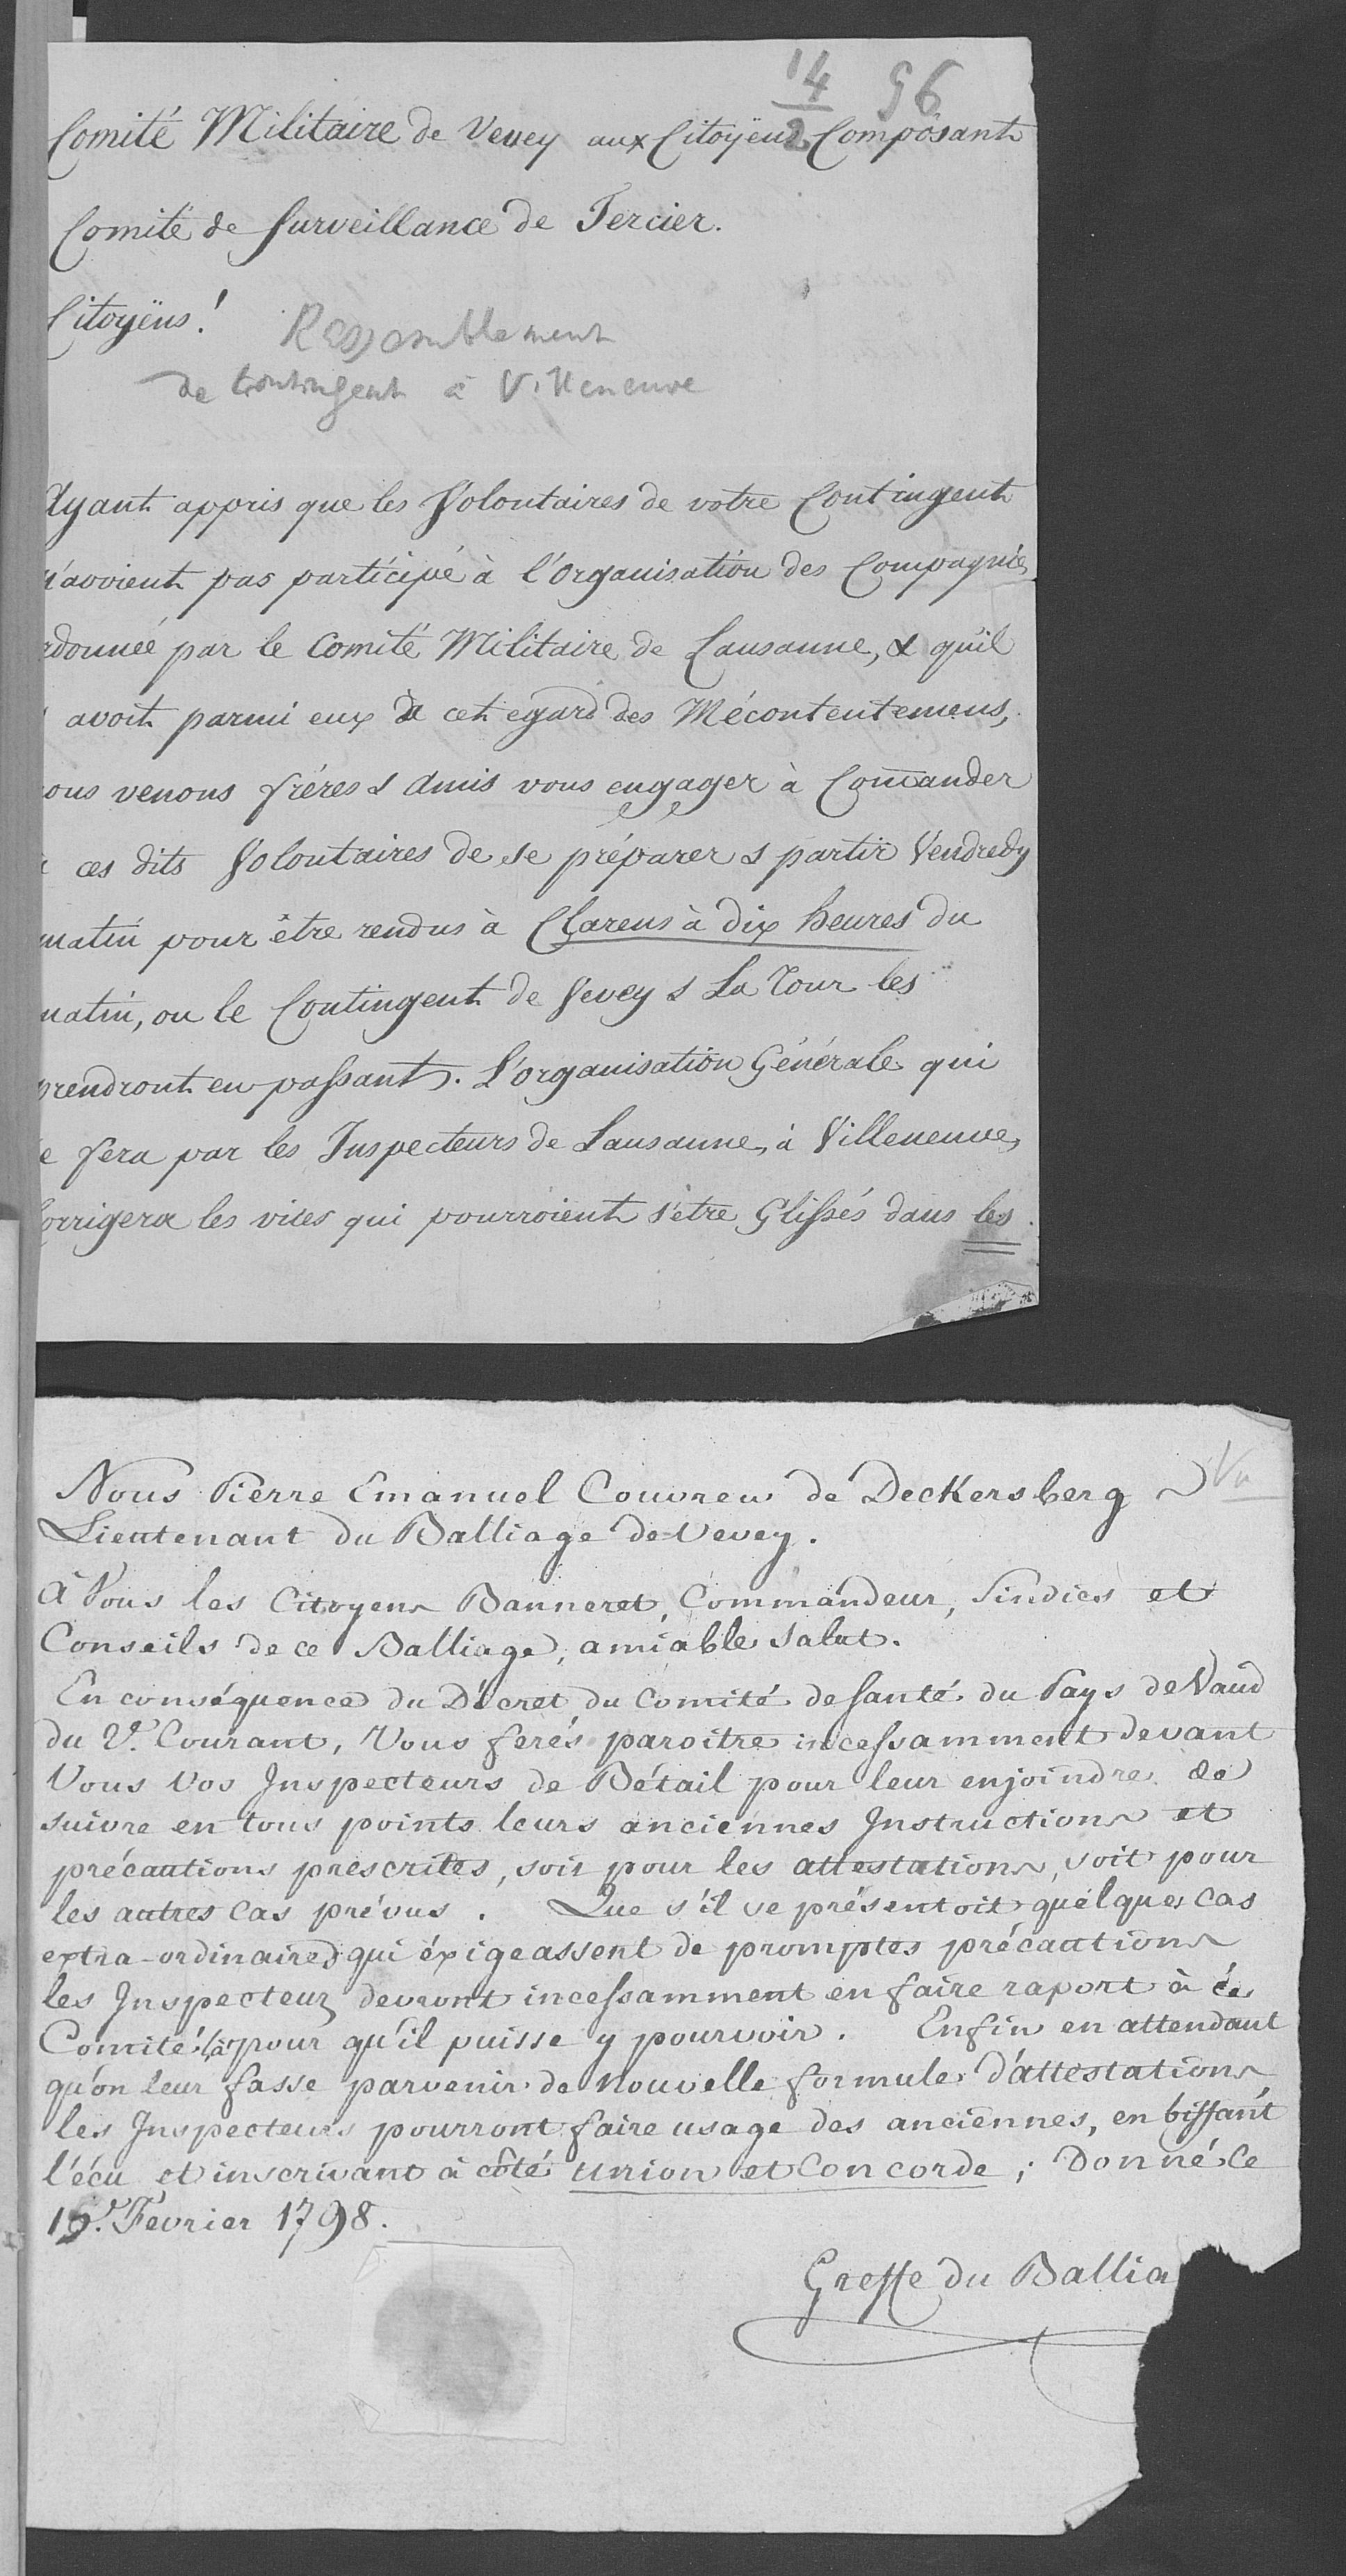 14/2 96
Comité Militaire de Vevey aux Citoÿens Composant
Comité de Surveillance de Tercier.
Citoÿens!
Rassemblement
de Contingent à Villeneuve
Ayant appris que les Volontaires de votre Contingent
n'avoient pas participé à l'Organisation des Compagnies
rdonnée par le Comité Militaire de Lausanne, & qu'il
avoit parmi eux à cet egard des Mécontentemens,
ous venons fréres & Amis vous engager à Com̄ander
à ces dits Volontaires de se préparer & partir Vendredy
matin pour être rendus à Clarens à dix heures du
matin, ou le Contingent de Vevey & La Tour les
prendront en passant. L'organisation Générale qui
e fera par les Inspecteurs de Lausanne, à Villeneuve,
Corrigera les vices qui pourroient s'etre Glissés dans les
Vu
Nous Pierre Emanuel Couvreu de Deckersberg
Lieutenant du Balliage de Vevey.
à Vous les Citoyens Banneret, Commandeur, Sindics et
Conseils de ce Balliage, amiable salut.
En conséquence du Décret du Comité de Santé du Pays de Vaud
du Courant, Vous ferés paroitre incessamment devant
Vous Vos Inspecteurs de Bétail pour leur enjoindre de
suivre en tous points leurs anciennes Instructions et
précautions prescrites, soit pour les attestations, soit pour
les autres cas prévus. Que s'il se présentoit quelques cas
extra-ordinaires qui éxigeassent de promptes précautions
les Inspecteurs devront incessamment en faire raport à ce
Comité là pour qu'il puisse y pourvoir. Enfin en attendant
qu'on leur fasse parvenir de nouvelle formule d'attestations
les Inspecteurs pourront faire usage des anciennes, en biffant
l'écu et inscrivant à côté Union et Concorde; Donné ce
Fevrier 1798.
Greffe du Ballia